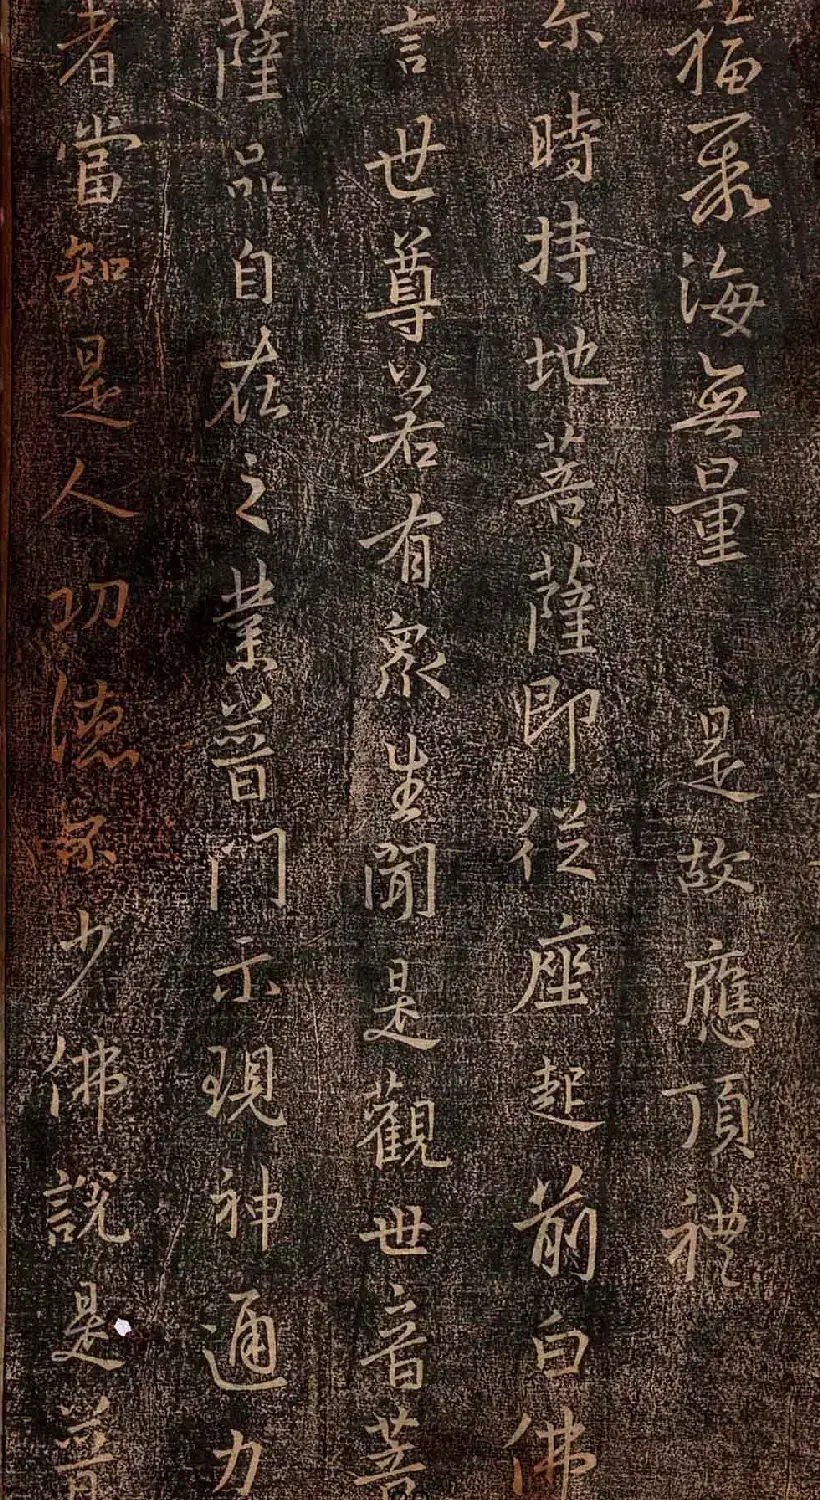 福聚海無量 是故應頂禮
尒時持地菩薩即從座起前白佛
言世尊若有衆生聞是觀世音菩
薩品自在之業普門示現神通力
者當知是人功德不少佛說是普